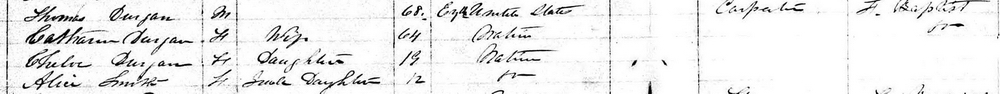 Thomas Durgan M 68 United States Carpenter F. Baptist
Catharin Durgan F Wife 64 Native Do
Durgan F Daughter 19 Native
Alice Smith F Daughter 12 Do